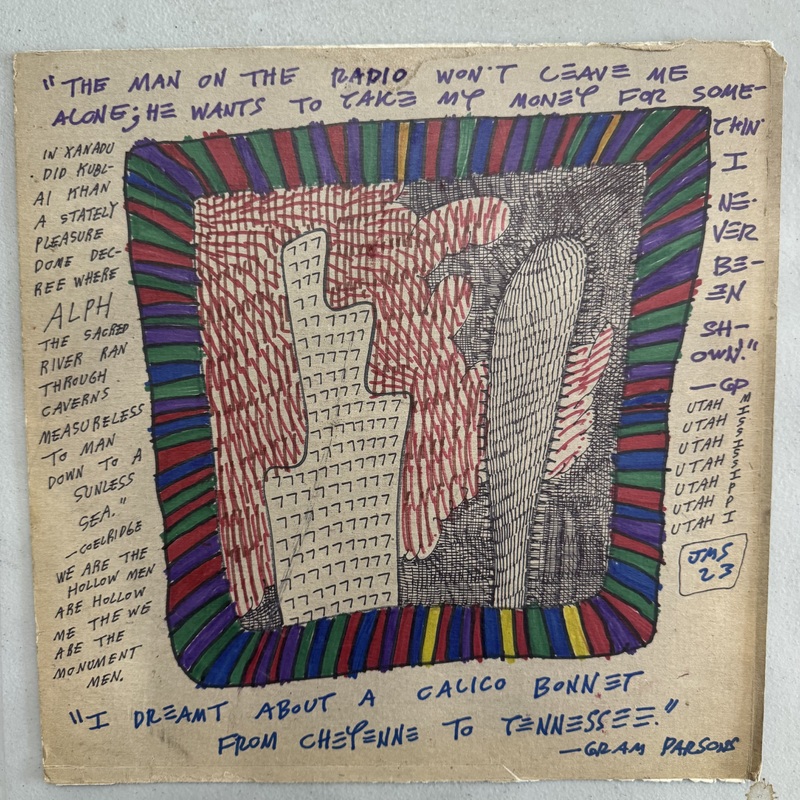 "THE MAN ON THE RADIO WON'T LEAVE ME
ALONE; HE WANTS TO TAKE MY MONEY FOR SOME-
THIN'
I
NE-
VER
BE-
EN
SH-
OWN."
—GP
IN XANADU
DID KUBL-
AI KHAN
A STATELY
PLEASURE
DOME DEC-
REE WHERE
ALPH
THE SACRED
RIVER RAN
THROUGH
CAVERNS
MEASURELESS
TO MAN
DOWN TO A
SUNLESS
SEA."
—COELRIDGE
WE ARE THE
HOLLOW MEN
ARE HOLLOW
ME THE WE
ARE THE
MONUMENT
MEN.
UTAH M
UTAH I
UTAH S
UTAH S
UTAH I
UTAH S
UTAH S
UTAH I
UTAH P
UTAH P
UTAH I
JMS
23
777
777
"I DREAMT ABOUT A CALICO BONNET
FROM CHEYENNE TO TENNESSEE."
—GRAM PARSONS